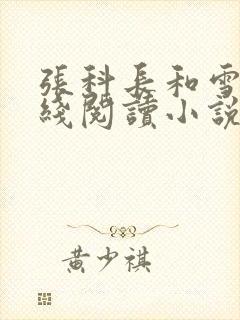 張科長和雪
綫閱讀小說
黄少祺